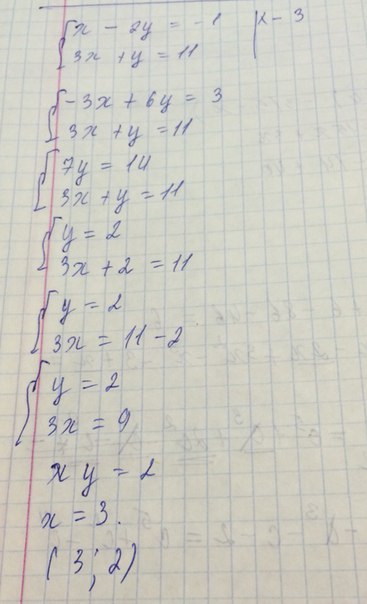 x - 2y = -1 | x - 3
3x + y = 11
-3x + 6y = 3
3x + y = 11
7y = 14
3x + y = 11
y = 2
3x + 2 = 11
y = 2
3x = 11 - 2
y = 2
3x = 9
x y = 2
x = 3.
(3; 2)